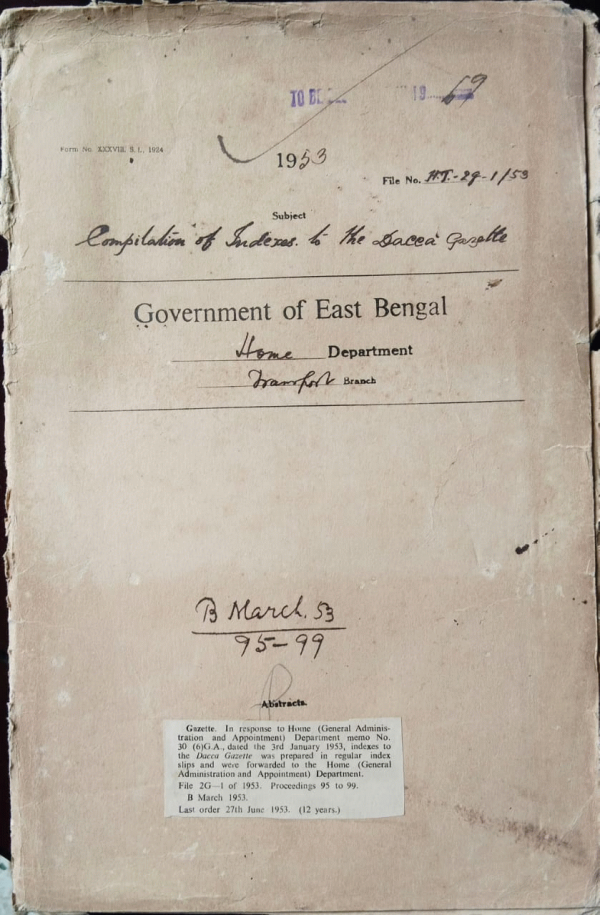 TO BE
19 69
Form No. XXXVIII, S. I., 1924
1953
File No. H.T.-2g-1/53
Subject
Compilation of Indexes to the Dacca Gazette
Government of East Bengal
Home Department
Transport Branch
B March. 53
95-99
Abstracts.
Gazette. In response to Home (General Adminis-
tration and Appointment) Department memo No.
30 (6)G.A., dated the 3rd January 1953, indexes to
the Dacca Gazette was prepared in regular index
slips and were forwarded to the Home (General
Administration and Appointment) Department.
File 2G—1 of 1953. Proceedings 95 to 99.
B March 1953.
Last order 27th June 1953. (12 years.)